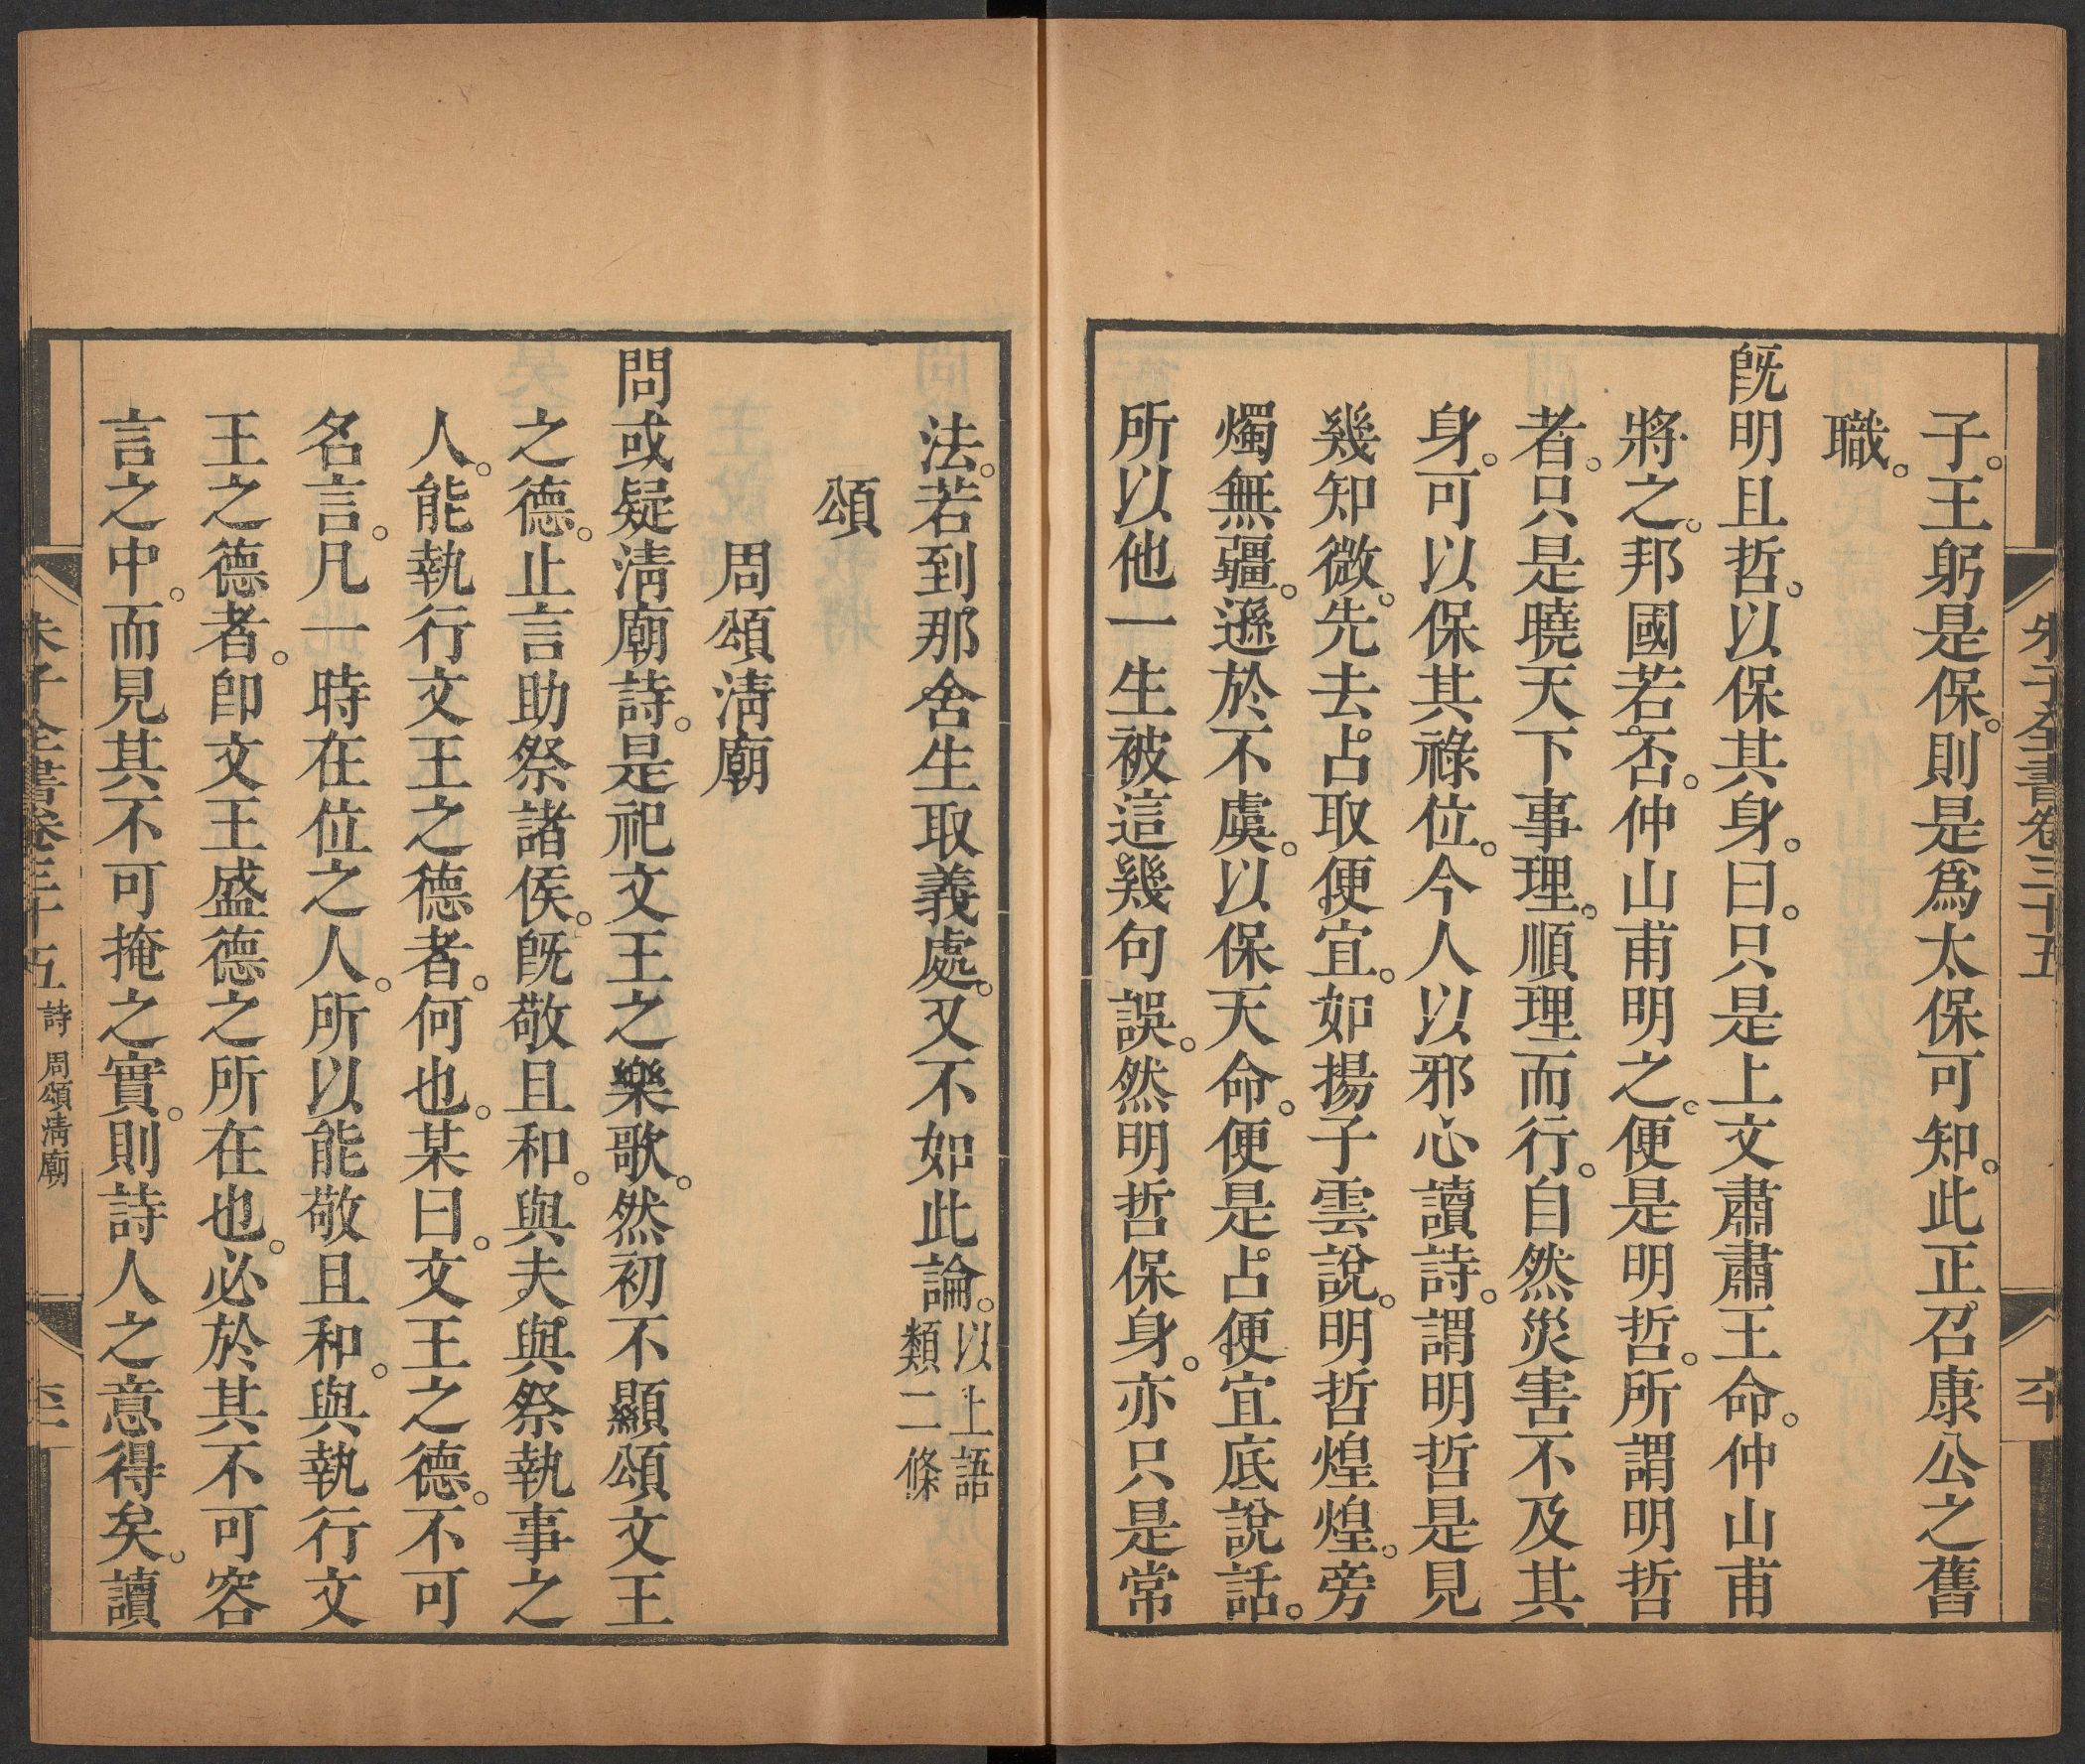 朱子全書卷三十五
子。王躬是保。則是爲太保可知。此正召康公之舊
職。
旣明且哲。以保其身。曰。只是上文肅肅王命。仲山甫
將之。邦國若否。仲山甫明之。便是明哲。所謂明哲
者。只是曉天下事理。順理而行。自然災害不及其
身。可以保其祿位。今人以邪心讀詩。謂明哲是見
幾知微。先去占取便宜。如揚子雲說。明哲煌煌。旁
燭無疆。遜於不虞。以保天命。便是占便宜底說話。
所以他一生被這幾句誤。然明哲保身。亦只是常
法。若到那舍生取義處。又不如此論。以上語
類二條
頌
周頌淸廟
問或疑淸廟詩。是祀文王之樂歌。然初不顯頌文王
之德。止言助祭諸侯。旣敬且和。與夫與祭執事之
人。能執行文王之德者。何也。某曰。文王之德。不可
名言。凡一時在位之人。所以能敬且和。與執行文
王之德者。卽文王盛德之所在也。必於其不可容
言之中。而見其不可掩之實。則詩人之意得矣。讀
朱子全書卷三十五 詩 周頌淸廟